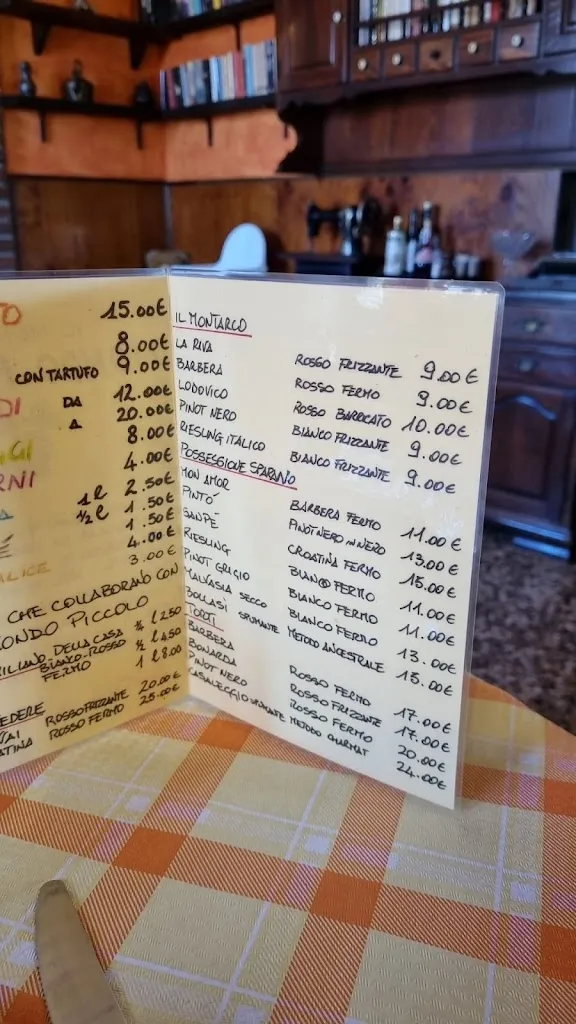 TO 15.00€
8.00€
CON TARTUFO 9.00€
DI DA 12.00€
A 20.00€
GI 8.00€
RNI 4.00€
1 l 2.50€
½ l 1.50€
É 1.50€
4.00€
ALICE 3.00€
CHE COLLABORANO CON
ONDO PICCOLO
DELLA CASA ¼ l 2.50
BIANCO-ROSSO ½ l 4.50
FERMO 1 l 8.00
EDERE
VAI ROSSO FRIZZANTE 20.00€
ATINA ROSSO FERMO 25.00€
IL MONTARCO
LA RIVA ROSSO FRIZZANTE 9.00€
BARBERA ROSSO FERMO 9.00€
LODOVICO ROSSO BARRICATO 10.00€
PINOT NERO BIANCO FRIZZANTE 9.00€
RIESLING ITALICO BIANCO FRIZZANTE 9.00€
POSSESSIONE SPARANO
MON AMOR BARBERA FERMO 11.00€
PINTÓ PINOT NERO IN NERO 13.00€
SANPÈ CROATINA FERMO 15.00€
RIESLING BIANCO FERMO 11.00€
PINOT GRIGIO BIANCO FERMO 11.00€
MALVASIA SECCO BIANCO FERMO 13.00€
BOLLASI SPUMANTE METODO ANCESTRALE 15.00€
TORTI
BARBERA ROSSO FERMO 17.00€
BONARDA ROSSO FRIZZANTE 17.00€
PINOT NERO ROSSO FERMO 20.00€
CASALEGGIO SPUMANTE METODO CHARMAT 24.00€